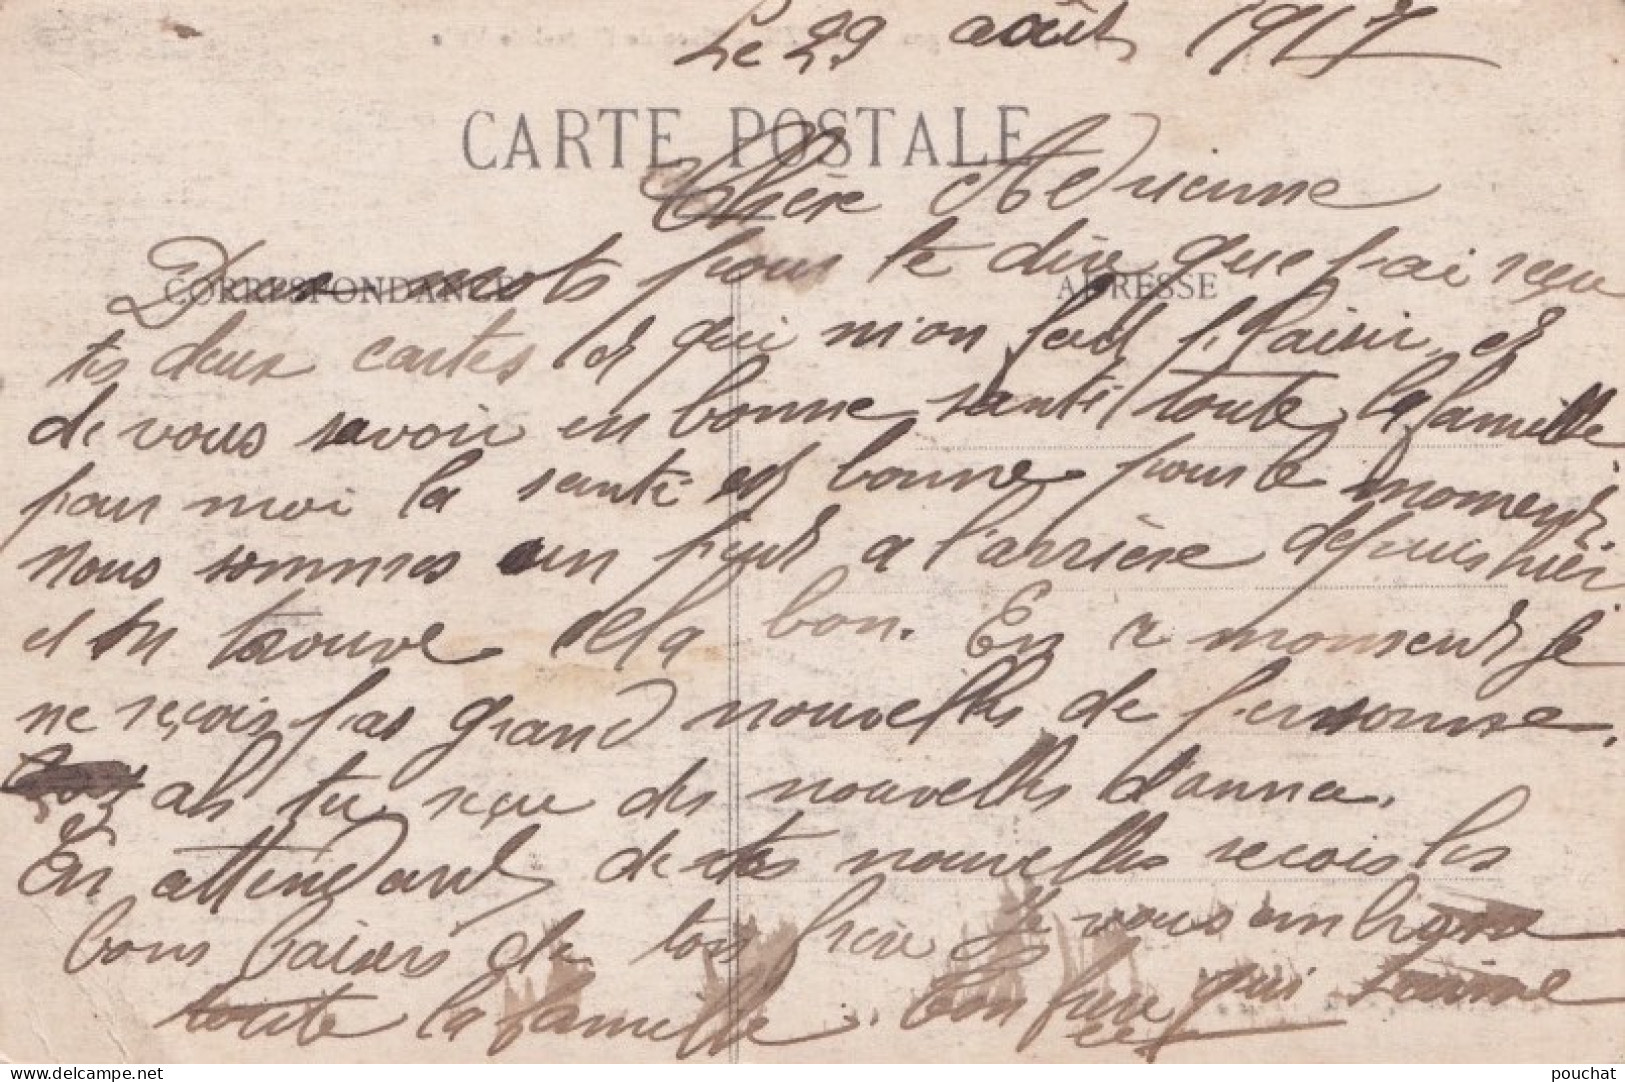 Le 29 août 1917
CARTE POSTALE
Chère Adrienne
CORRESPONDANCE
ADRESSE
Deux mots pour te dire que j'ai reçu
tes deux cartes et qui m'on fait plaisir et
de vous savoir en bonne santé toute la famille
pour moi la santé est bonne pour le moment
nous sommes un peut a l'arrière depuis hier
et on trouve cela bon. En ce moment je
ne reçois pas grand nouvelles de personne.
as tu reçu des nouvelles d'anna.
En attendant de tes nouvelles recois les
bons baisers de ton frère Je vous embrasse
toute la famille. ton frère qui t'aime
delcampe.net
pouchat